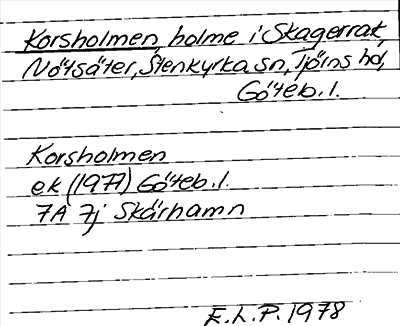 Korsholmen, holme i Skagerrak,
Nötsäter, Stenkyrka sn, Tjörns hd,
Göteb. l.
Korsholmen
ek (1977) Göteb. l.
7A 7j Skärhamn
E.L.P. 1978